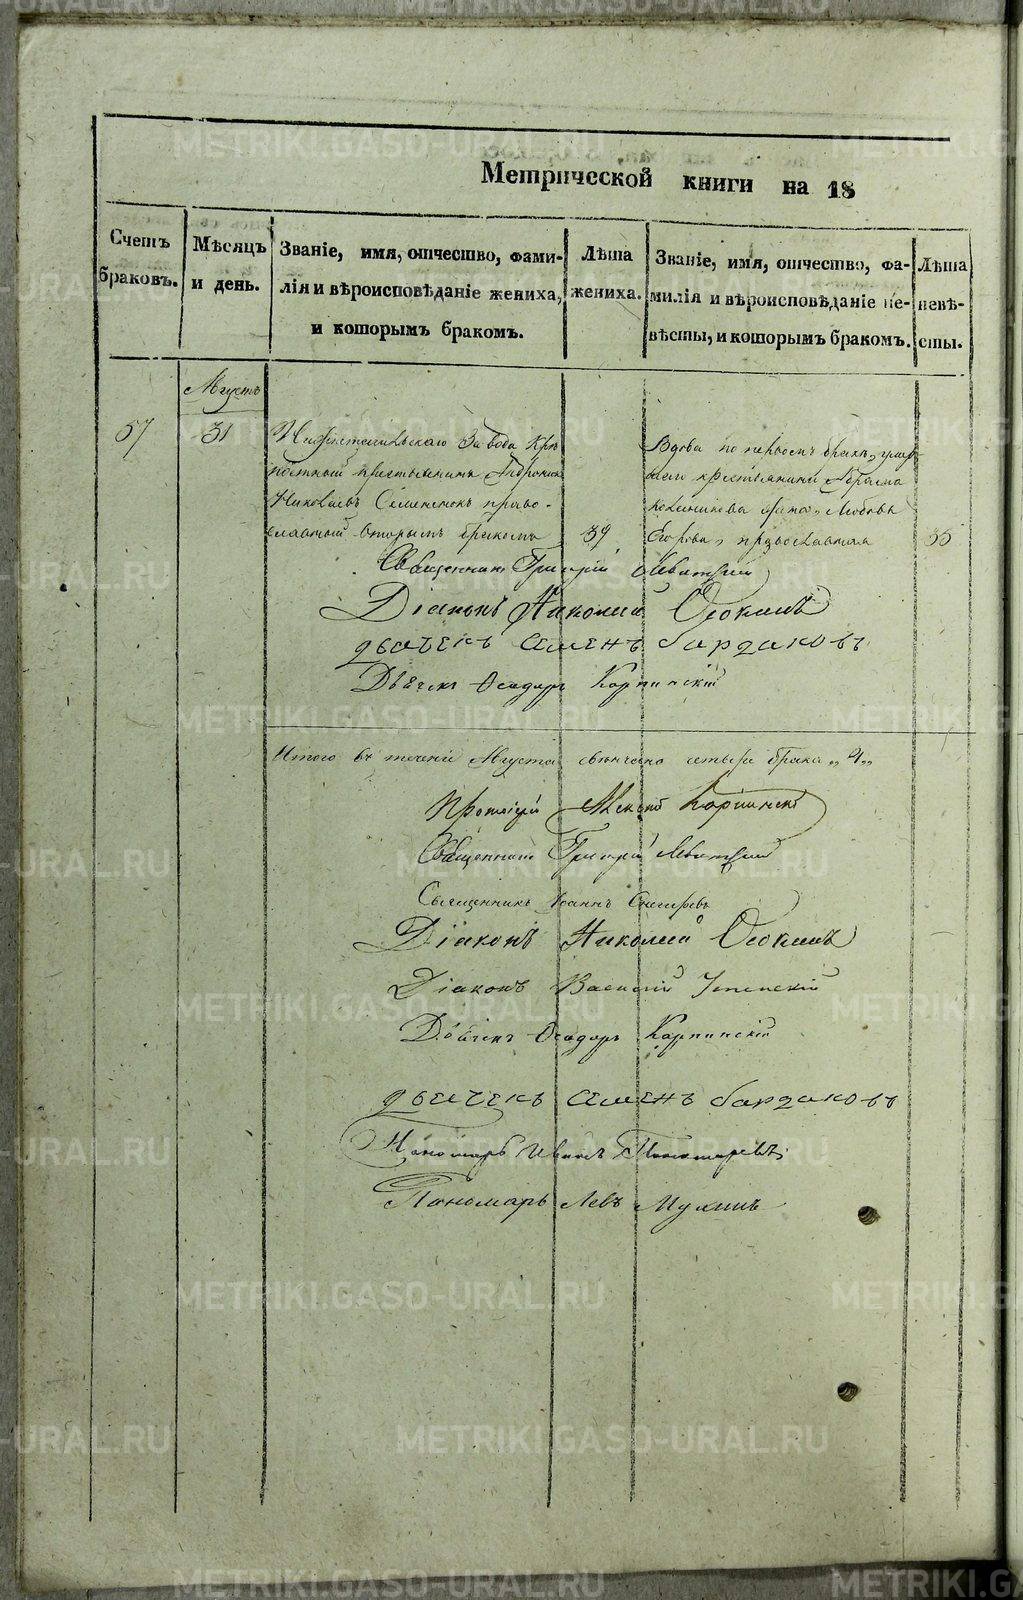 METRIKI.GASO-URAL.RU
Метрической книги на 18
Счетъ браковъ.
Мѣсяцъ и день.
Званіе, имя, отчество, фами-
лія и вѣроисповѣданіе жениха,
и которымъ бракомъ.
Лѣта
жениха.
Званіе, имя, отчество, фа-
милія и вѣроисповѣданіе не-
вѣсты, и которымъ бракомъ.
Лѣта
невѣ-
сты.
Августъ
57
31
завода Крѣ
постный крестьянинъ
Николаевъ право-
славный вторымъ бракомъ
39
Вдова по первомъ бракѣ, умер
крестьянина
жена Любовь
Егорова, православная
35
Священникъ Григорій
Діаконъ Николай Осокинъ
дьячекъ семенъ бардаковъ
Дьячекъ Ѳеодоръ Карпинскій
Итого въ теченіи Августа вѣнчано четыре брака „4„
Алексѣй Карпинскій
Священникъ Григорій
Священникъ Іоаннъ
Діаконъ Николай Осокинъ
Діаконъ Василій Успенскій
Дьячекъ Ѳеодоръ Карпинскій
дьячекъ семенъ бардаковъ
Пономарь Иванъ Пономаревъ
Пономарь Левъ Мухинъ